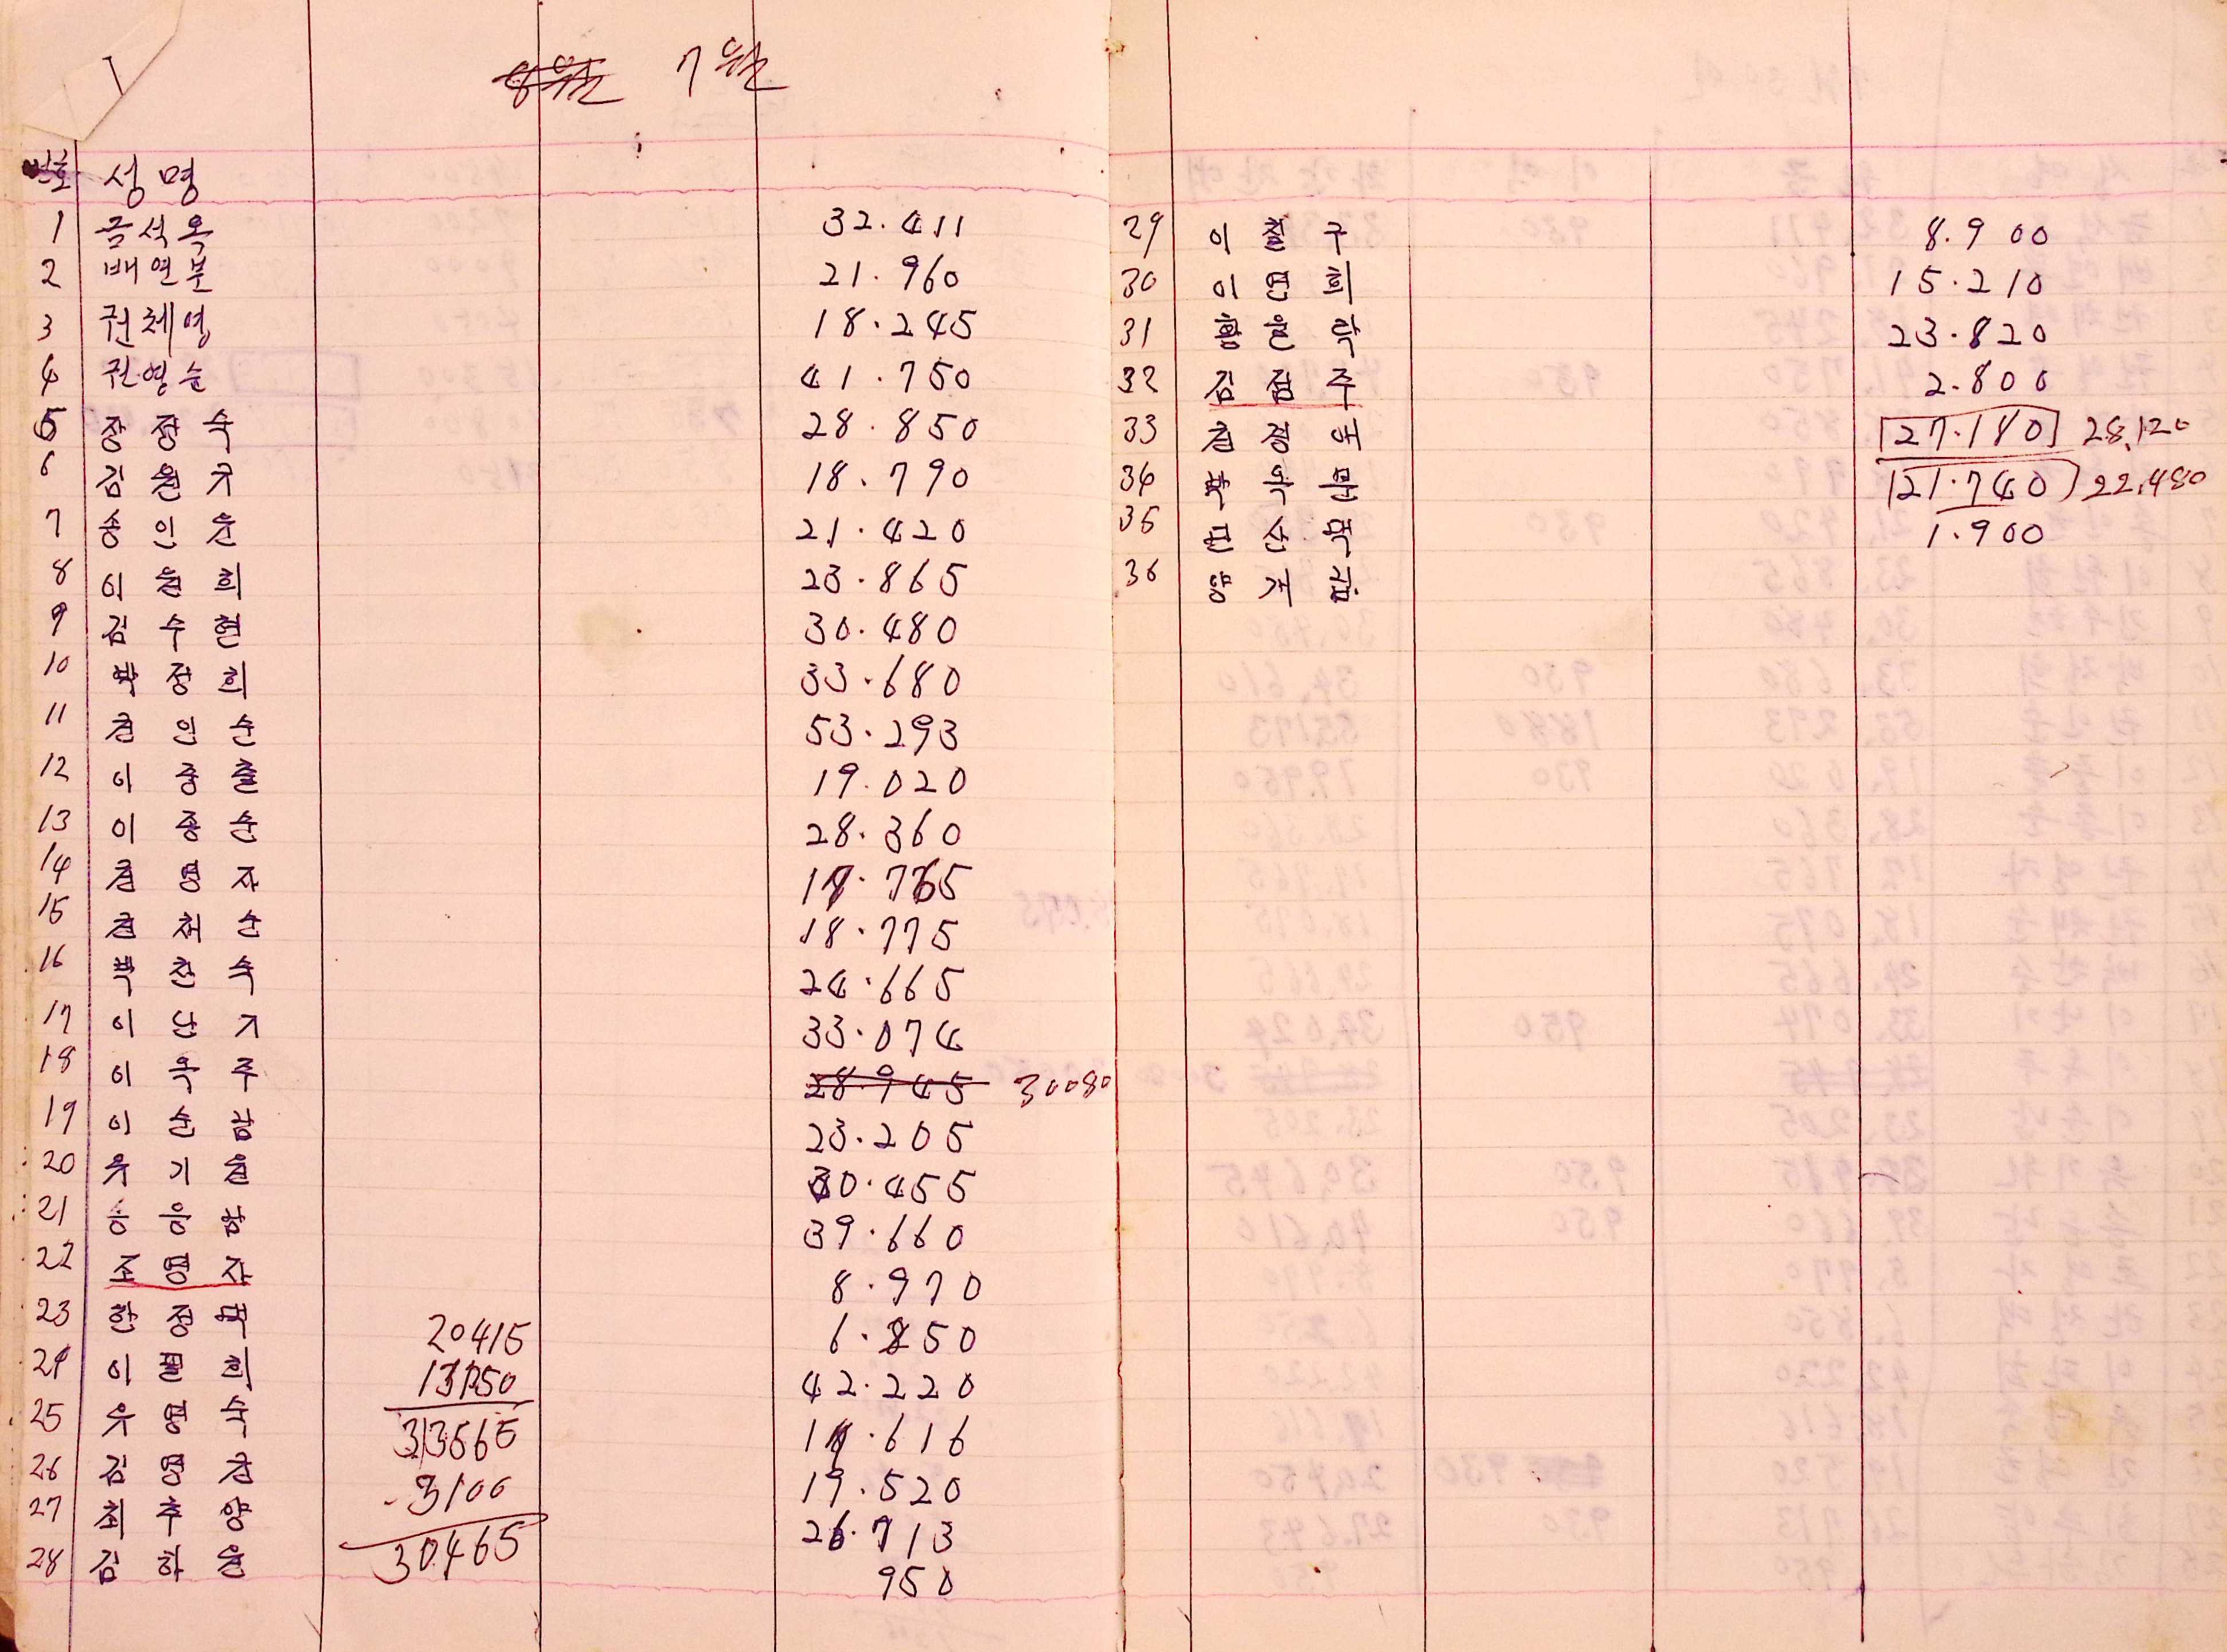 7월
번호 성명
1 금석옥 32.411
2 배연분 21.960
3 권체영 18.245
4 권영순 41.750
5 장장숙 28.850
6 김원구 18.790
7 송인순 21.420
8 이원희 23.865
9 김수현 30.480
10 박정희 33.680
11 권인순 53.293
12 이중출 19.020
13 이종순 28.360
14 권영자 17.765
15 권최순 18.775
16 박찬숙 24.665
17 이난기 33.074
18 이옥주 28.945 30080
19 이순남 23.205
20 우기원 30.455
21 39.660
22 조영자 8.970
23 한정택 6.850
24 이필희 42.220
25 우영숙 .616
26 김영금 19.520
27 최추양 26.713
28 김하윤 950
20415
13150
33565
-3100
30465
29 이철구 8.900
30 이연희 15.210
31 황윤락 23.820
32 김점주 2.800
33 27.180 28,120
34 21.740 22,480
35 1.900
36